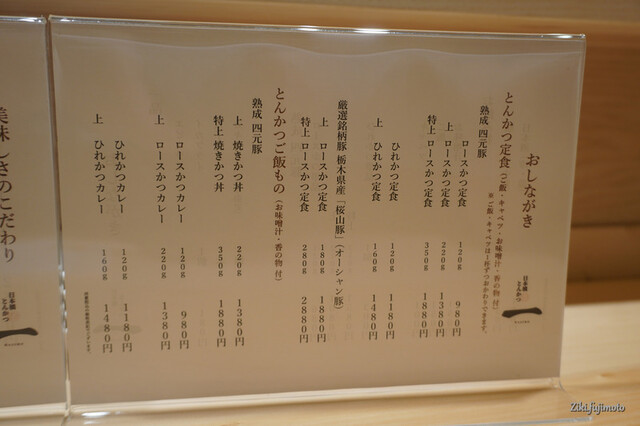 おしながき
とんかつ定食(ご飯・キャベツ・お味噌汁・香の物 付)
※ご飯・キャベツは1杯ずつおかわりできます。
熟成 四元豚
ロースかつ定食 120g 980円
上 ロースかつ定食 220g 1380円
特上 ロースかつ定食 350g 1880円
ひれかつ定食 120g 1180円
上 ひれかつ定食 160g 1480円
厳選銘柄豚 栃木県産「桜山豚」(オーシャン豚)
上 ロースかつ定食 180g 1880円
特上 ロースかつ定食 280g 2880円
とんかつご飯もの(お味噌汁・香の物 付)
熟成 四元豚
上 焼きかつ丼 220g 1380円
特上 焼きかつ丼 350g 1880円
ロースかつカレー 120g 980円
上 ロースかつカレー 220g 1380円
ひれかつカレー 120g 1180円
上 ひれかつカレー 160g 1480円
日本橋
とんかつ
一
美味しさのこだわり
日本橋
とんかつ
一
Ziki fujimoto